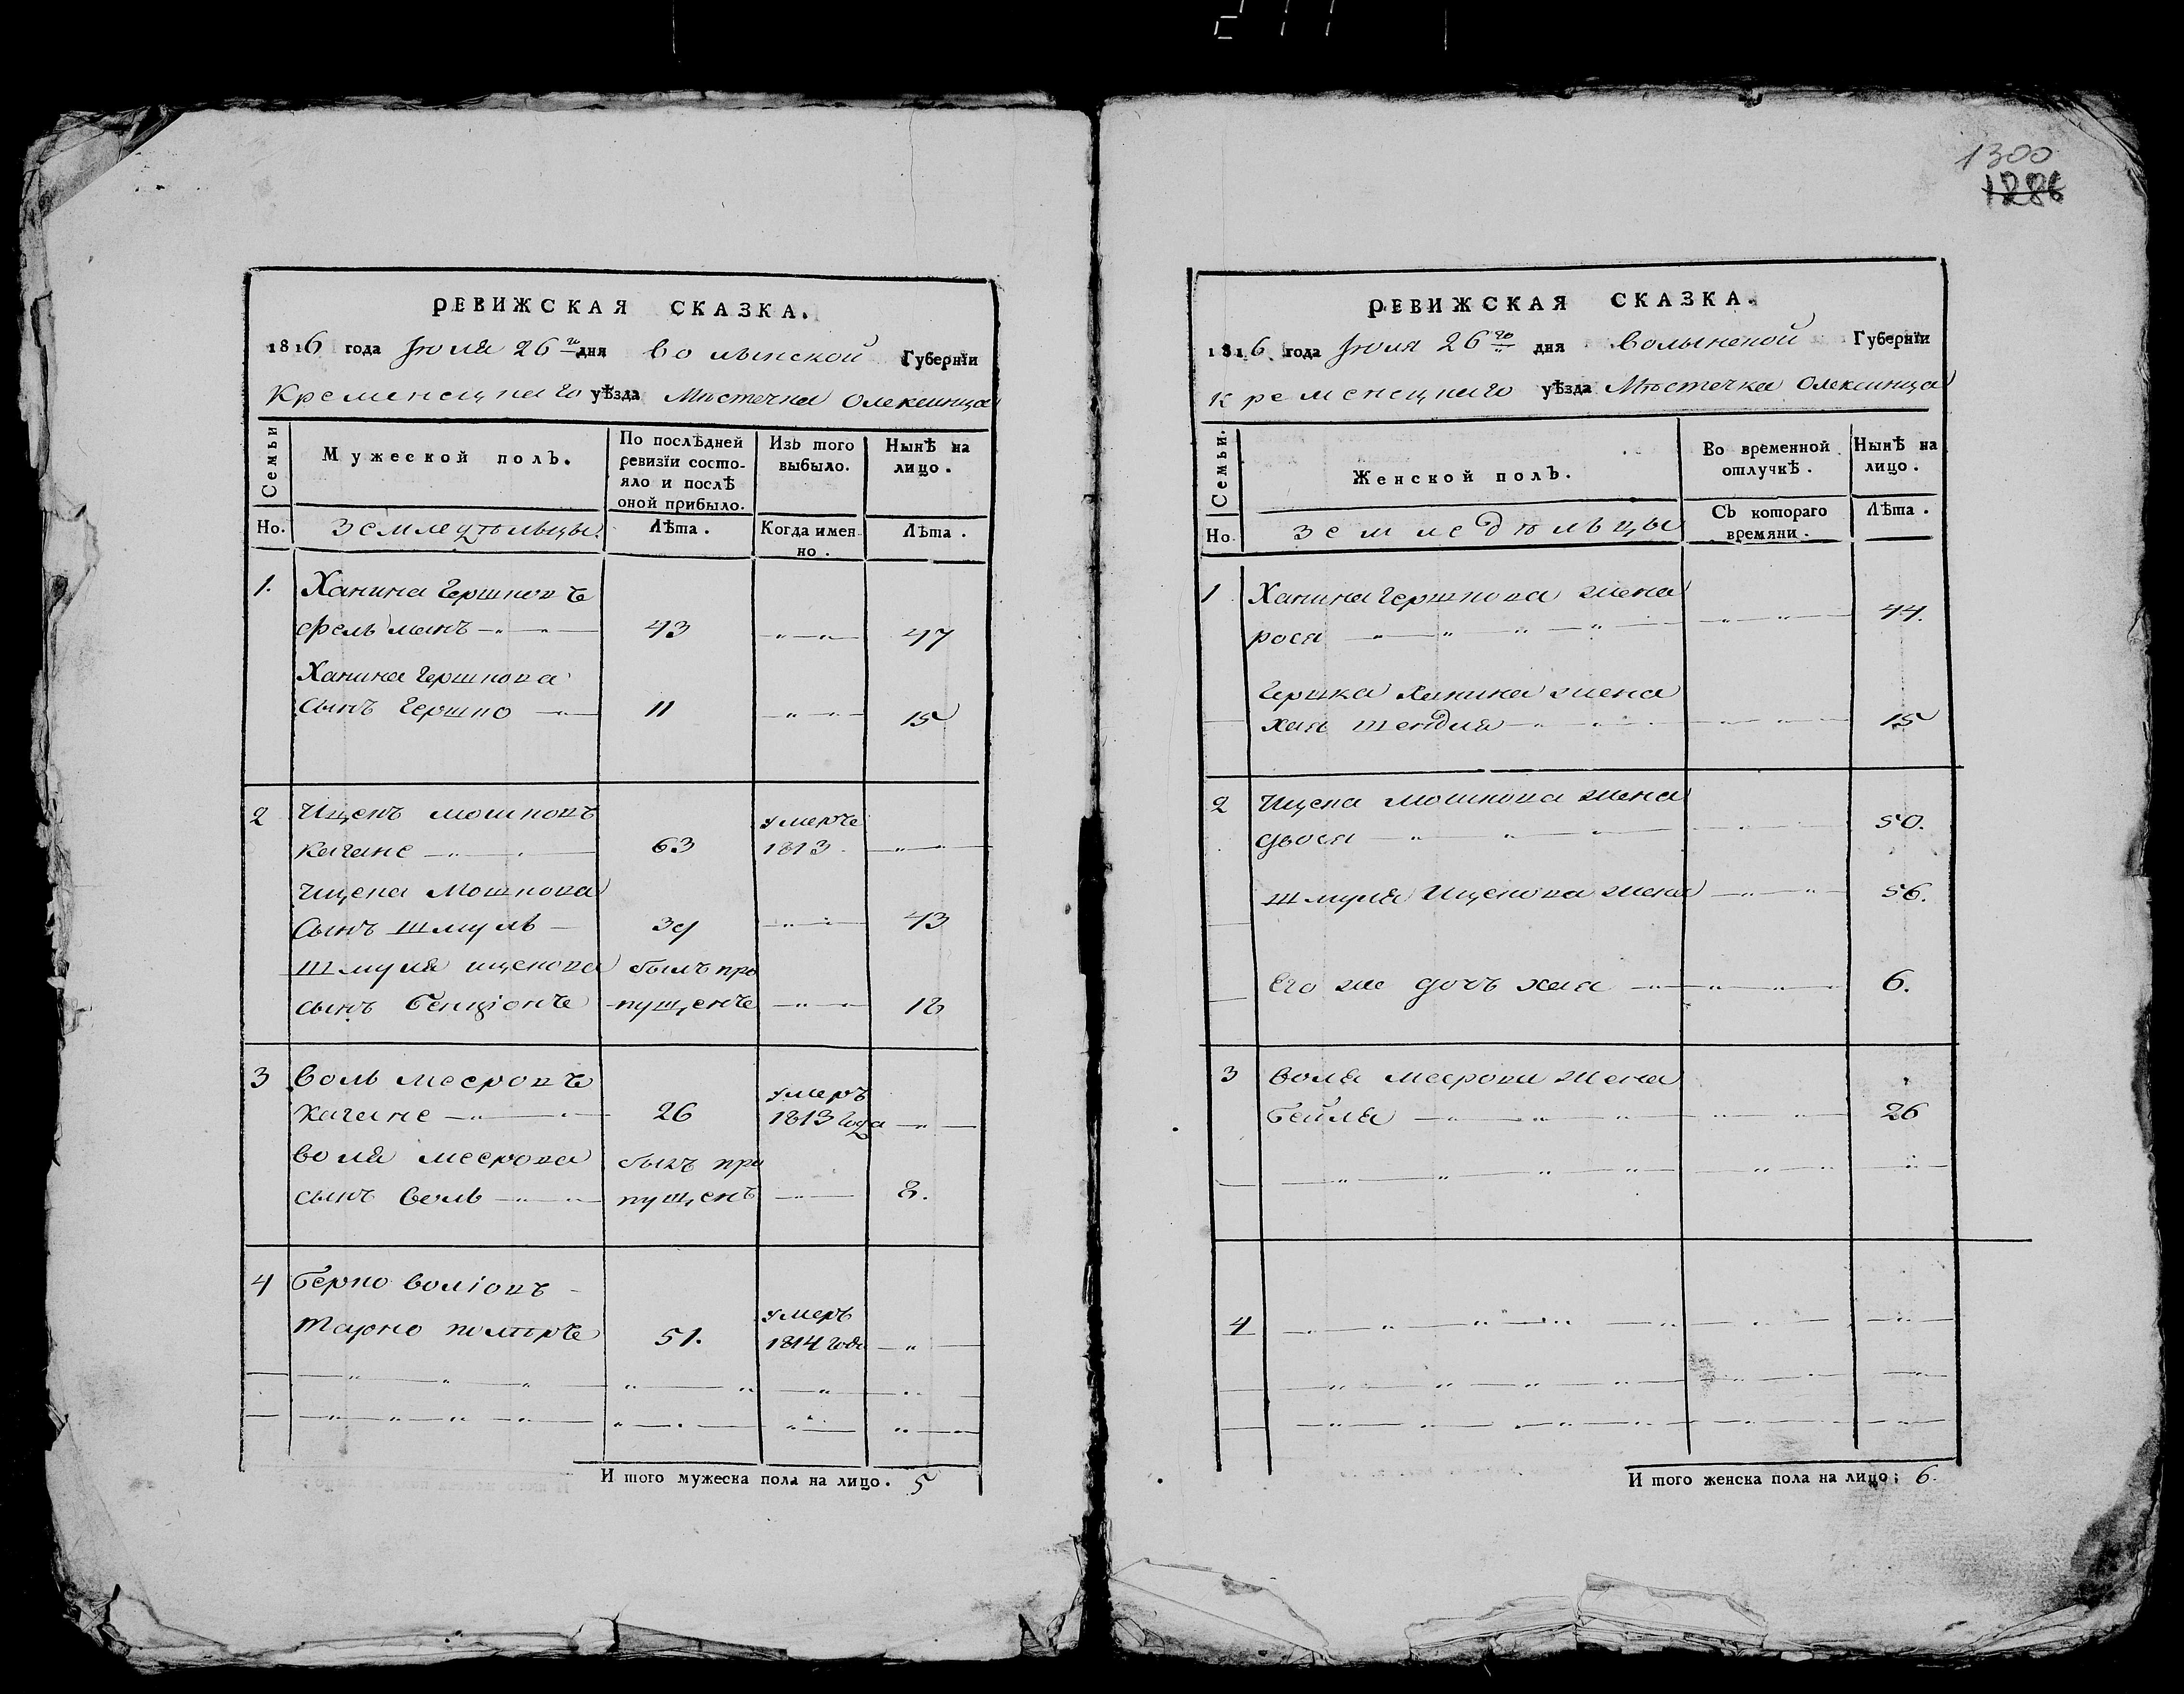 1300
1286
РЕВИЖСКАЯ СКАЗКА.
1816 года Іюля 26 дня Волынской Губернїи
Кременецкаго уѣзда Мѣстечка Олексинца
Семьи
Мужеской полъ.
По послѣдней ревизїи состо-
яло и послѣ
оной прибыло.
Изъ того выбыло.
Нынѣ на лицо.
Но.
Земледѣльцы.
Лѣта.
Когда имен-
но.
Лѣта.
1. Ханина Гершковъ
Фельманъ 43 47
Ханина Гершкова
сынъ Гершко 11 15
2 Ицекъ Мошковъ
Кагане 63 умеръ 1813
Ицека Мошкова
Сынъ Шмуль 39 43
Шмуля Ицекова былъ про
сынъ Бенціонъ пущенъ 18
3 Воль Мееровъ
Кагане 26 умеръ 1813 года
Воля Меерова былъ про
сынъ Воль пущенъ 8.
4 Берко Воліовъ
51. умеръ 1814 года
И того мужеска пола на лицо. 5
РЕВИЖСКАЯ СКАЗКА.
1816 года Іюля 26го дня Волынской Губернїи
Кременецкаго уѣзда Мѣстечка Олексинца
Семьи.
Женской полъ.
Во временной отлучкѣ.
Нынѣ на лицо.
Но.
Земледѣльцы
Съ котораго времяни.
Лѣта.
1 Ханина Гершкова жена
Рося 44.
Гершка Ханина жена
Хая Шендля 15
2 Ицека Мошкова жена
Двося 50.
Шмуля Ицекова жена 36.
Его же дочь Хая 6.
3 Воля Меерова жена
Бейля 26
4
И того женска пола на лицо; 6.